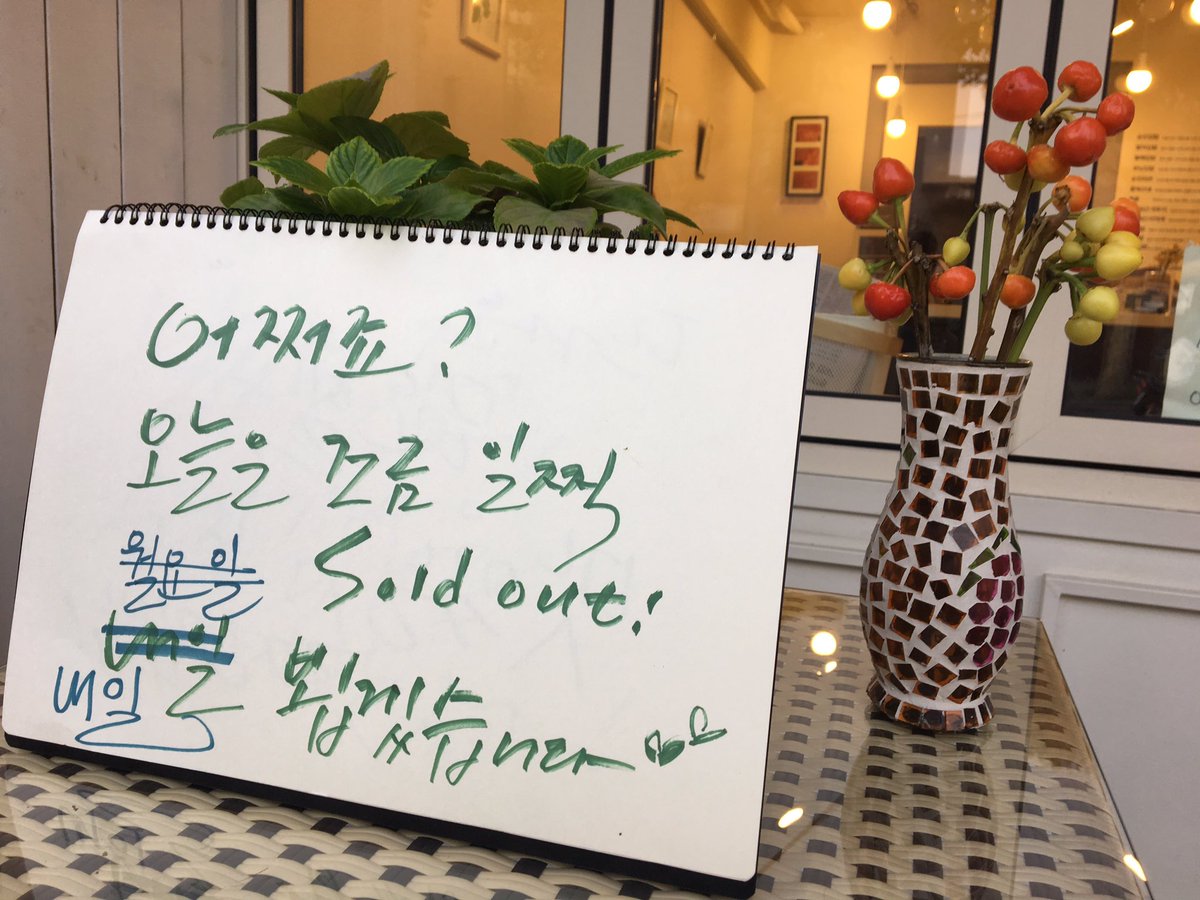 어쩌죠?
오늘은 조금 일찍
Sold out!
월요일
내일
내일 뵙겠습니다